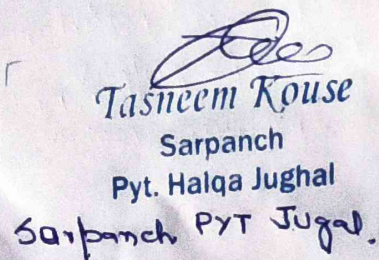 Tasneem Kouse
Sarpanch
Pyt. Halqa Jughal
Sarpanch PYT Jugal.